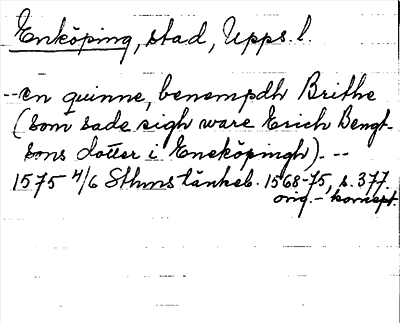 Enköping, stad, Upps. l.
-- en quinne, benempdh Brithe
(som sade sigh ware Erich Bengt-
sons dotter i Eneköpingh). --
1575 4/6 Sthms tänkeb. 1568-75, s. 377.
orig. - koncept.